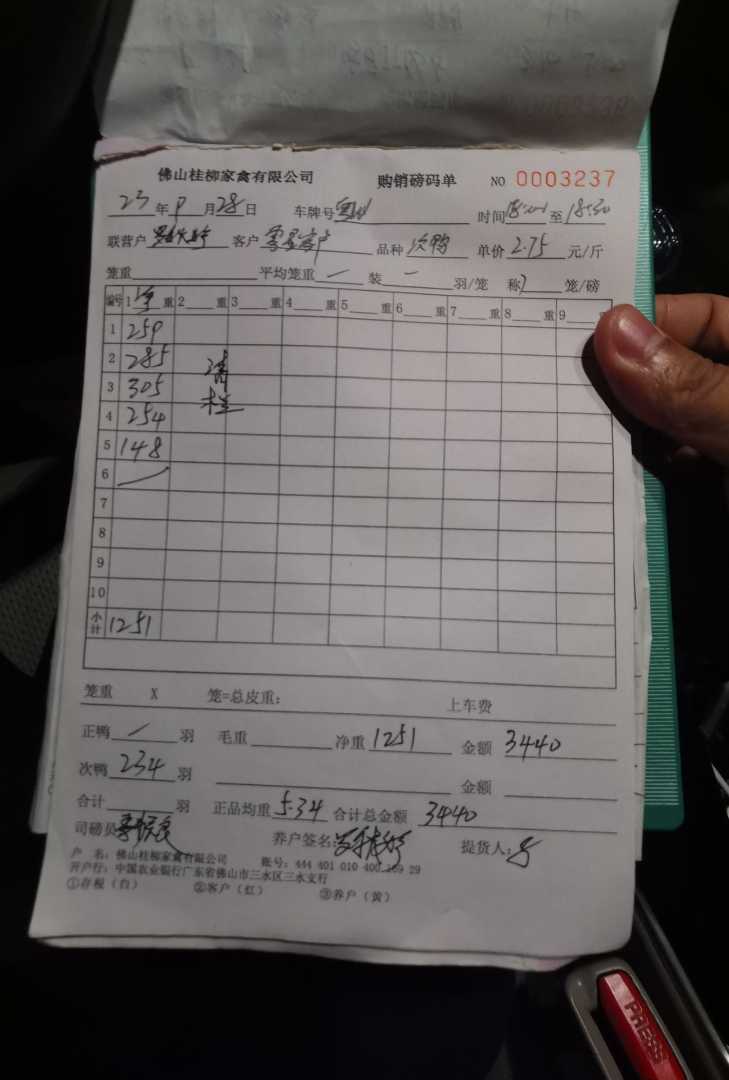 佛山桂柳家禽有限公司 购销磅码单 NO 0003237
23年9月28日 车牌号 时间 至18:30
联营户 客户 零星客户 品种 次鸭 单价 2.75 元/斤
笼重 平均笼重 — 装 — 羽/笼 称 笼/磅
编号 1 净 重 2 重 3 重 4 重 5 重 6 重 7 重 8 重 9 重
1 259
2 285 清
3 305
4 254 栏
5 148
6 —
7
8
9
10
小计 1251
笼重 X 笼=总皮重: 上车费
正鸭 / 羽 毛重 净重 1251 金额 3440
次鸭 234 羽 金额
合计 羽 正品均重 5.34 合计总金额 3440
司磅员 养户签名: 提货人:
户 名: 佛山桂柳家禽有限公司 账号: 444 401 010 400 169 29
开户行: 中国农业银行广东省佛山市三水区三水支行
①存根(白) ②客户(红) ③养户(黄)
PRESS